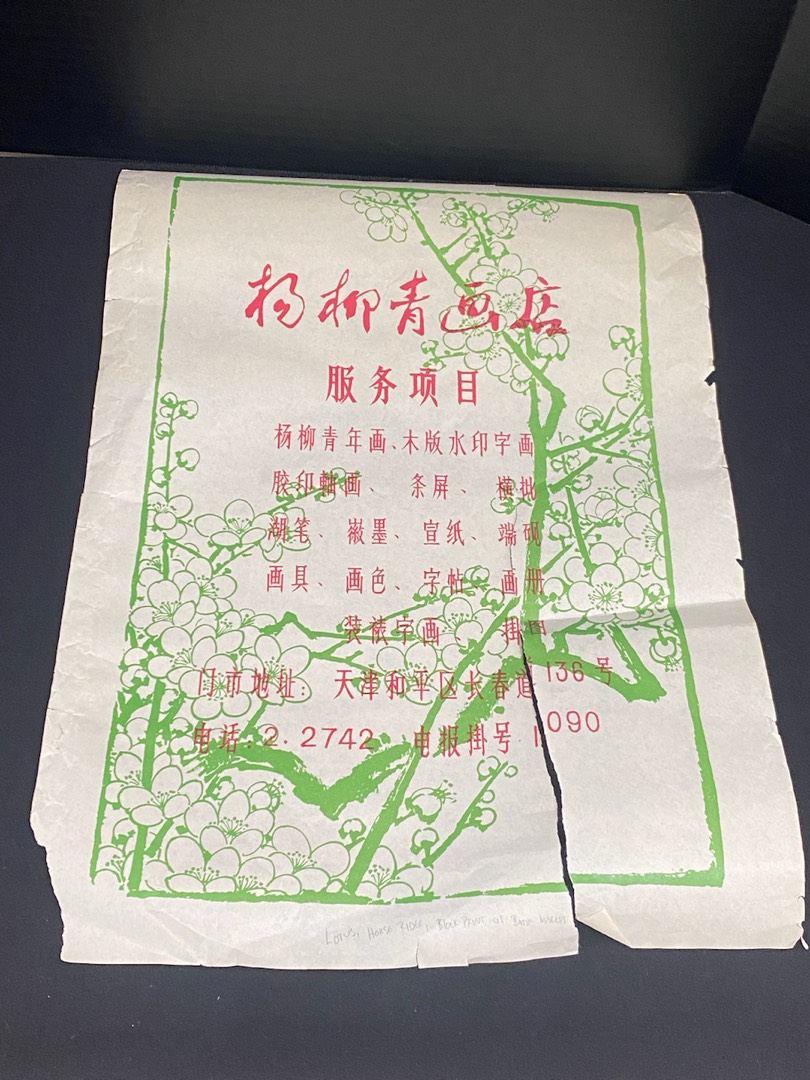 杨柳青画店
服务项目
杨柳青年画、木版水印字画
胶印轴画、 条屏、 横批
湖笔、徽墨、宣纸、端砚
画具、画色、字帖、画册
装裱字画、 挂图
门市地址: 天津和平区长春道136号
电话:2.2742 电报挂号1090
LOTUS, HORSE RIDER, BLOCK PRINT OF